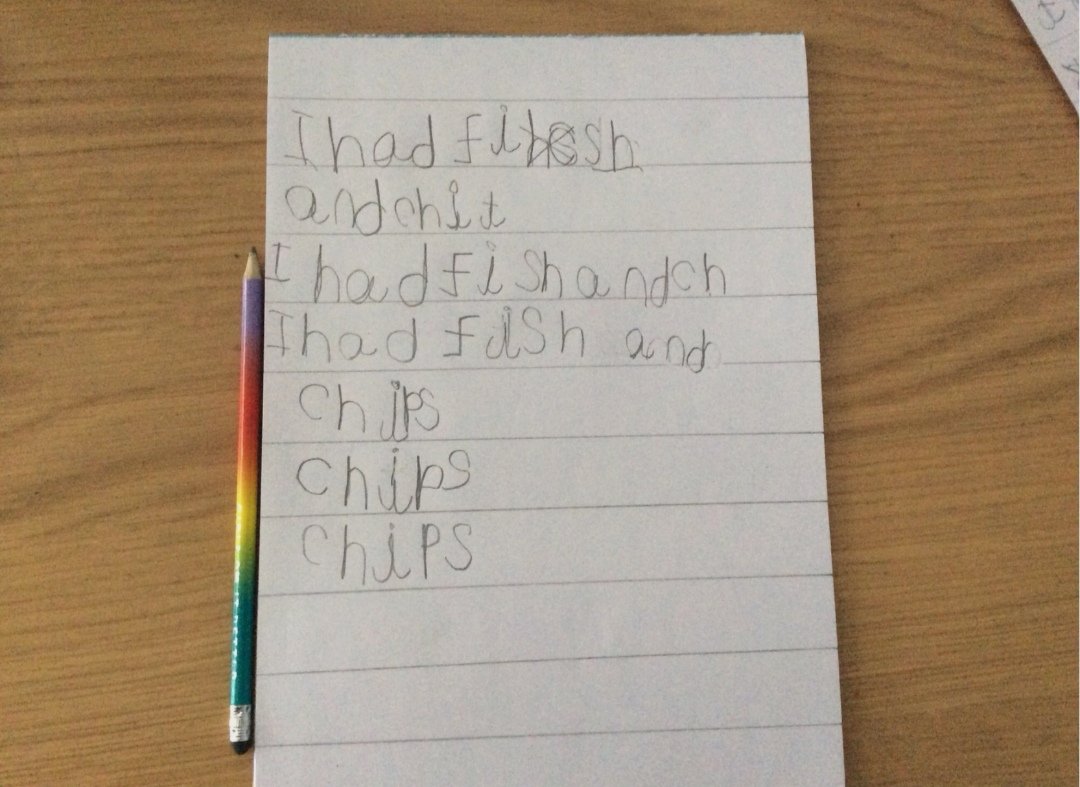 I had fish
and chit
I had fish and ch
I had fish and
chips
chips
chips